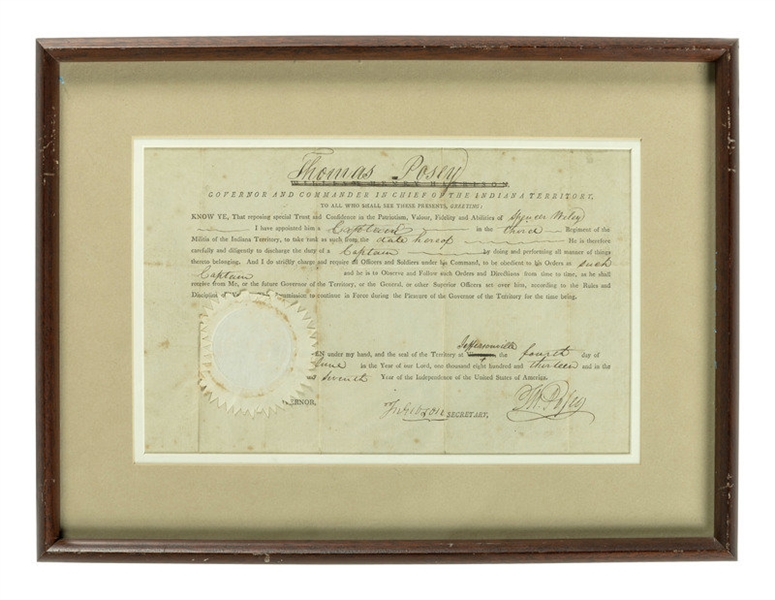 Thomas Posey
GOVERNOR AND COMMANDER IN CHIEF OF THE INDIANA TERRITORY,
TO ALL WHO SHALL SEE THESE PRESENTS, GREETING:
KNOW YE, That reposing special Trust and Confidence in the Patriotism, Valour, Fidelity and Abilities of Spencer Wiley
I have appointed him a Captain in the third Regiment of the
Militia of the Indiana Territory, to take rank as such from the date hereof He is therefore
carefully and diligently to discharge the duty of a Captain by doing and performing all manner of things
thereto belonging. And I do strictly charge and require all Officers and Soldiers under his Command, to be obedient to his Orders as such
Captain and he is to Observe and Follow such Orders and Directions from time to time, as he shall
receive from Me, or the future Governor of the Territory, or the General, or other Superior Officers set over him, according to the Rules and
Discipline of Commission to continue in Force during the Pleasure of the Governor of the Territory for the time being.
Jeffersonville
EN under my hand, and the seal of the Territory at the fourth day of
June in the Year of our Lord, one thousand eight hundred and thirteen and in the
seventh Year of the Independence of the United States of America.
ERNOR,
Jn Gibson SECRETARY,
Th Posey